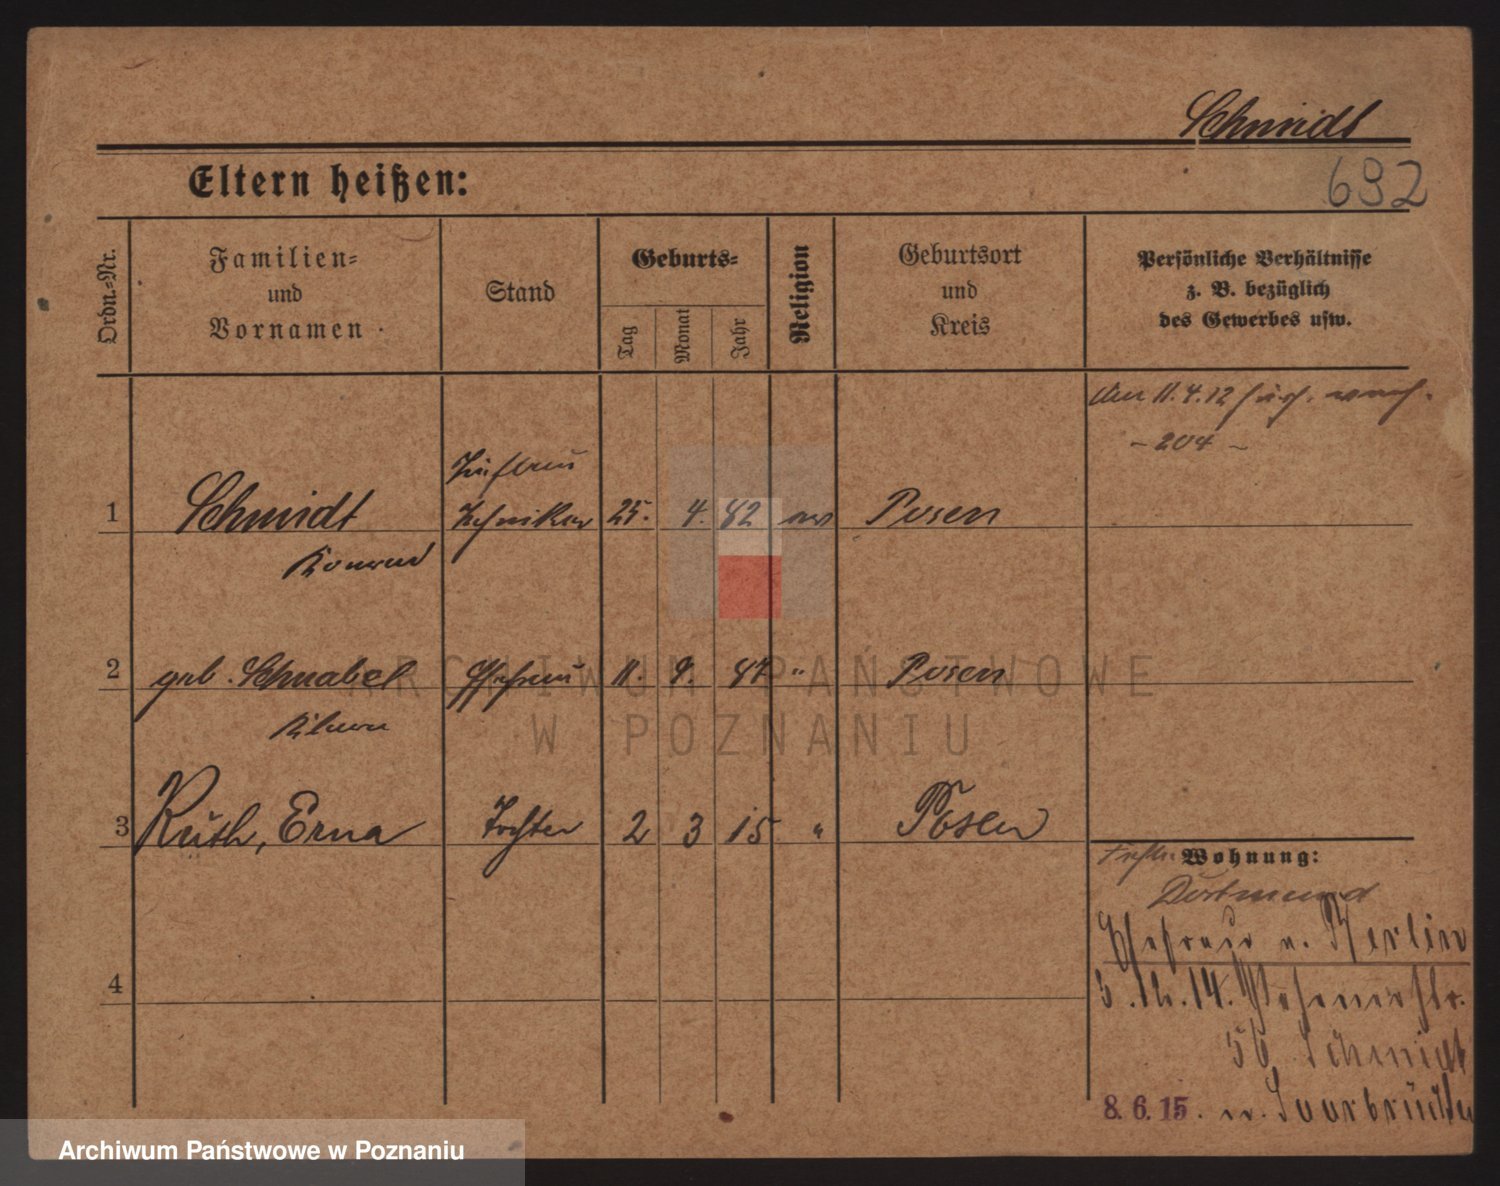 Schmidt
Eltern heißen:
692
Ordn.-Nr.
Familien-
und
Vornamen
Stand
Geburts-
Tag
Monat
Jahr
Religion
Geburtsort
und
Kreis
Persönliche Verhältnisse
z. B. bezüglich
des Gewerbes usw.
Am 11.4.12
- 204 -
1 Schmidt Techniker 25. 4. 82 Posen
Konrad
2 geb. Schnabel Ehefrau 11. 9. 87 " Posen
3 Ruth, Erna Tochter 2 3 15 " Posen
Wohnung:
Dortmund
Ehefrau n. Berlin
5.12.14.
56 Schmidt
4
8. 6. 15. n. Saarbrücken
ARCHIWUM PAŃSTWOWE
W POZNANIU
Archiwum Państwowe w Poznaniu